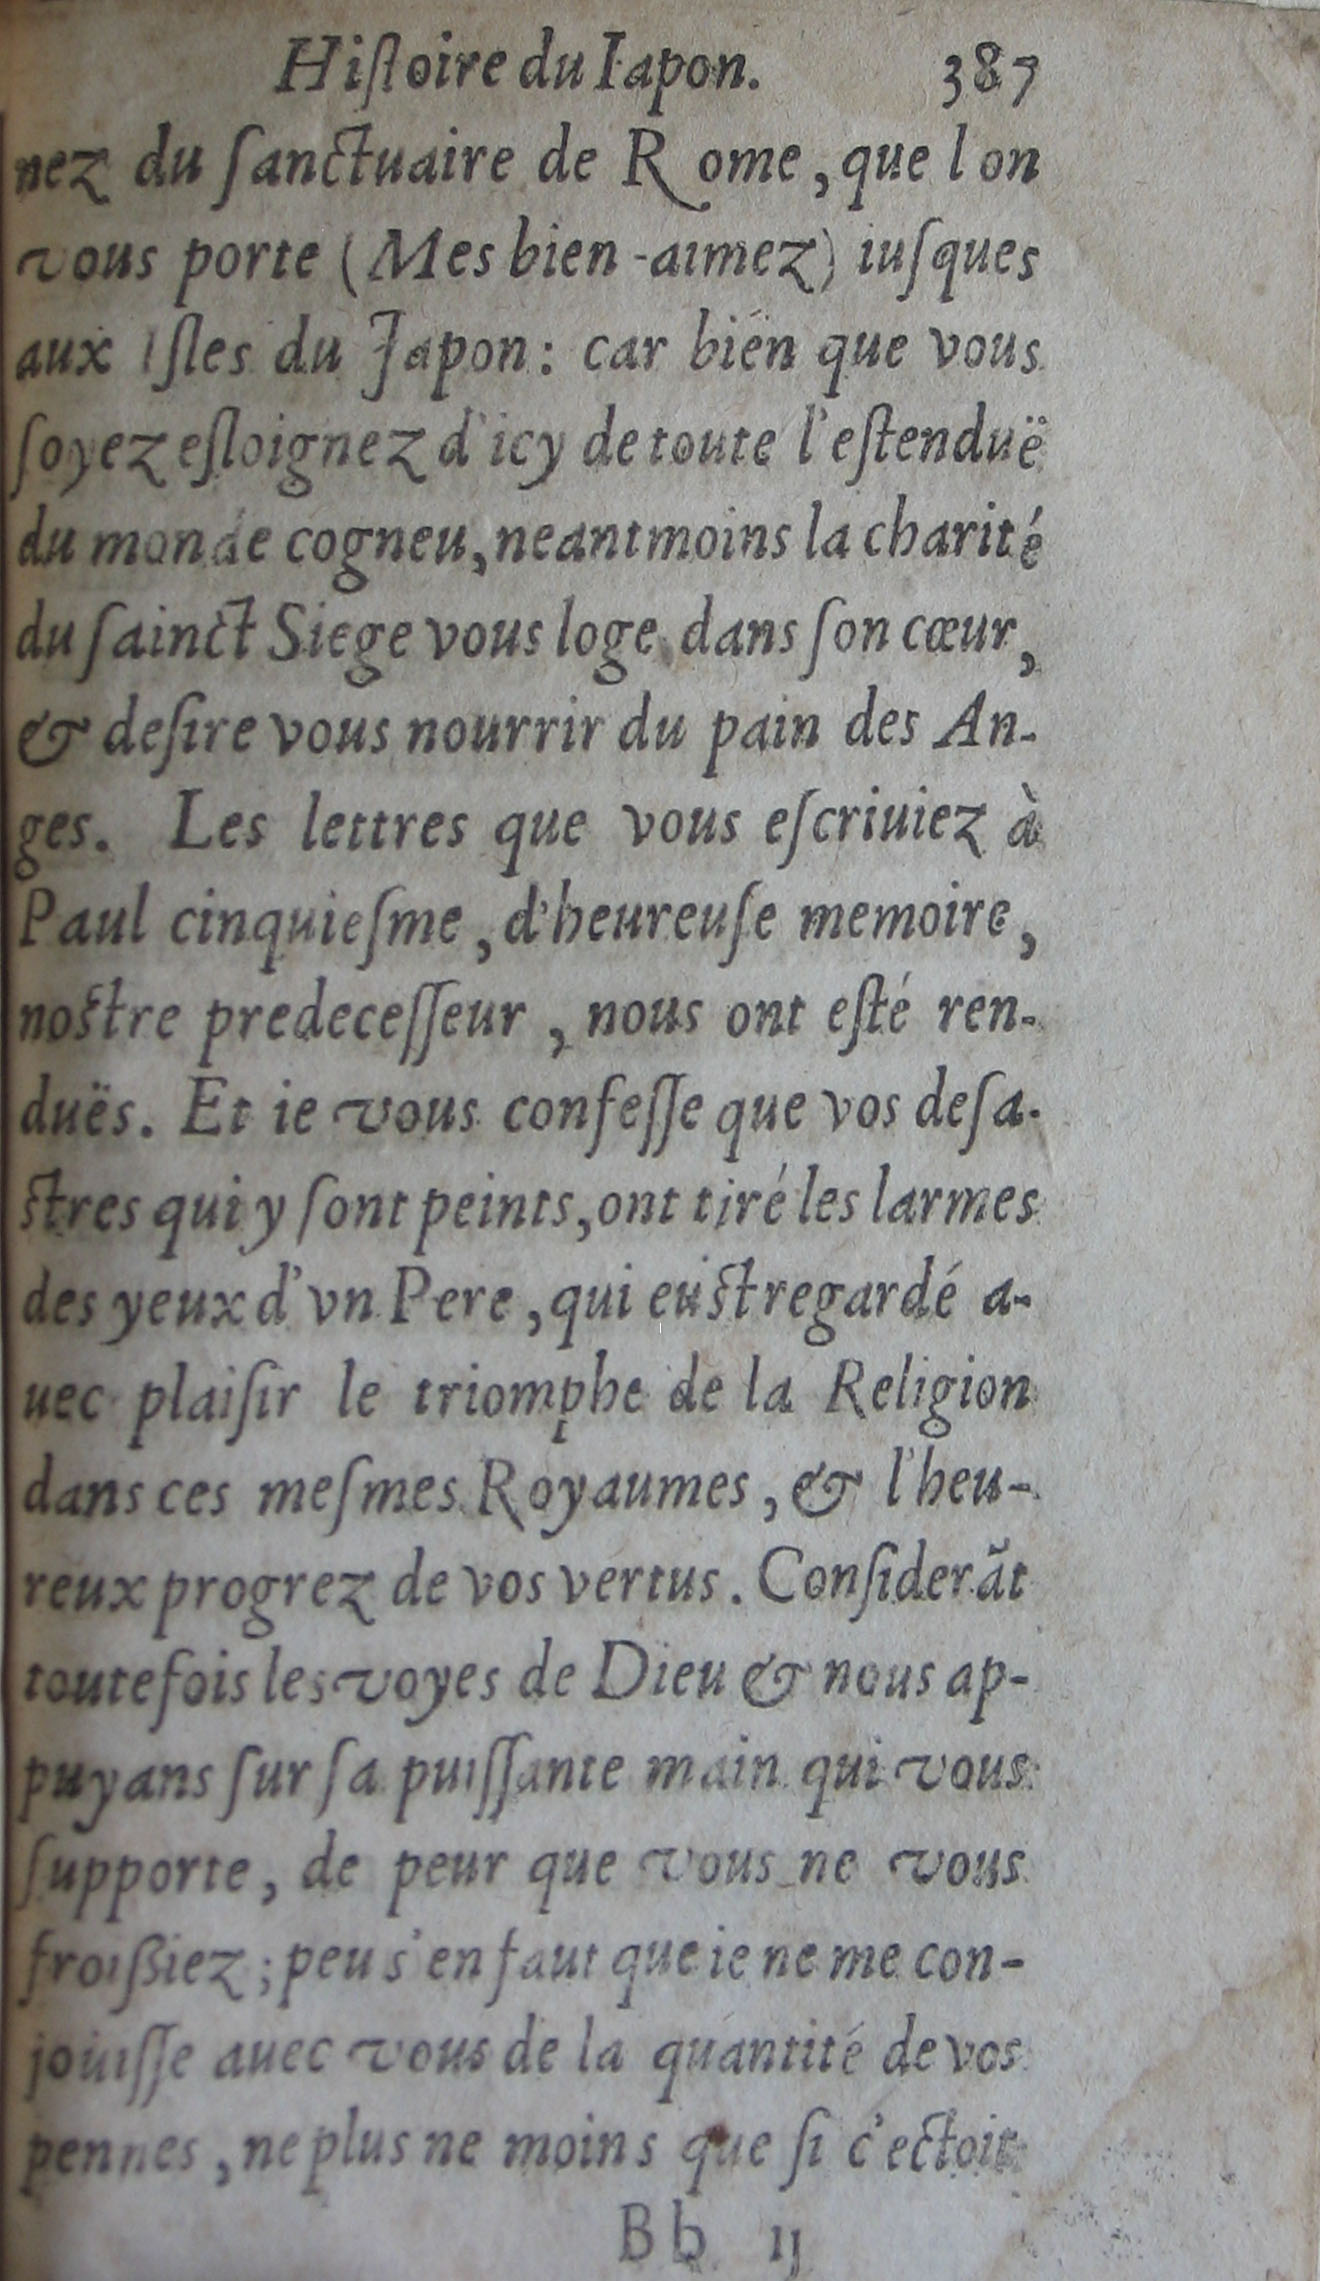 Hiſtoire du Iapon. 387
nez du ſanctuaire de Rome, que lon
vous porte (Mes bien-aimez) iuſques
aux Iſles du Japon: car bién que vous
ſoyez eſloignez d'icy de toute l'eſtenduë
du monde cogneu, neantmoins la charité
du ſainct Siege vous loge dans ſon cœur,
& deſire vous nourrir du pain des An-
ges. Les lettres que vous eſcriuiez à
Paul cinquieſme, d'heureuſe memoire,
noſtre predeceſſeur, nous ont eſté ren-
duës. Et ie vous confeſſe que vos deſa-
ſtres qui y ſont peints, ont tiré les larmes
des yeux d'vn Pere, qui euſt regardé a-
uec plaiſir le triomphe de la Religion
dans ces meſmes Royaumes, & l'heu-
reux progrez de vos vertus. Conſiderãt
toutefois les voyes de Dieu & nous ap-
puyans ſur ſa puiſſante main qui vous
ſupporte, de peur que vous ne vous
froiſſiez; peu s'en faut que ie ne me con-
jouiſſe auec vous de la quantité de vos
pennes, ne plus ne moins que ſi c'ectoit
Bb ij